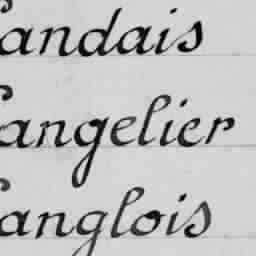 andais
angelier
anglois